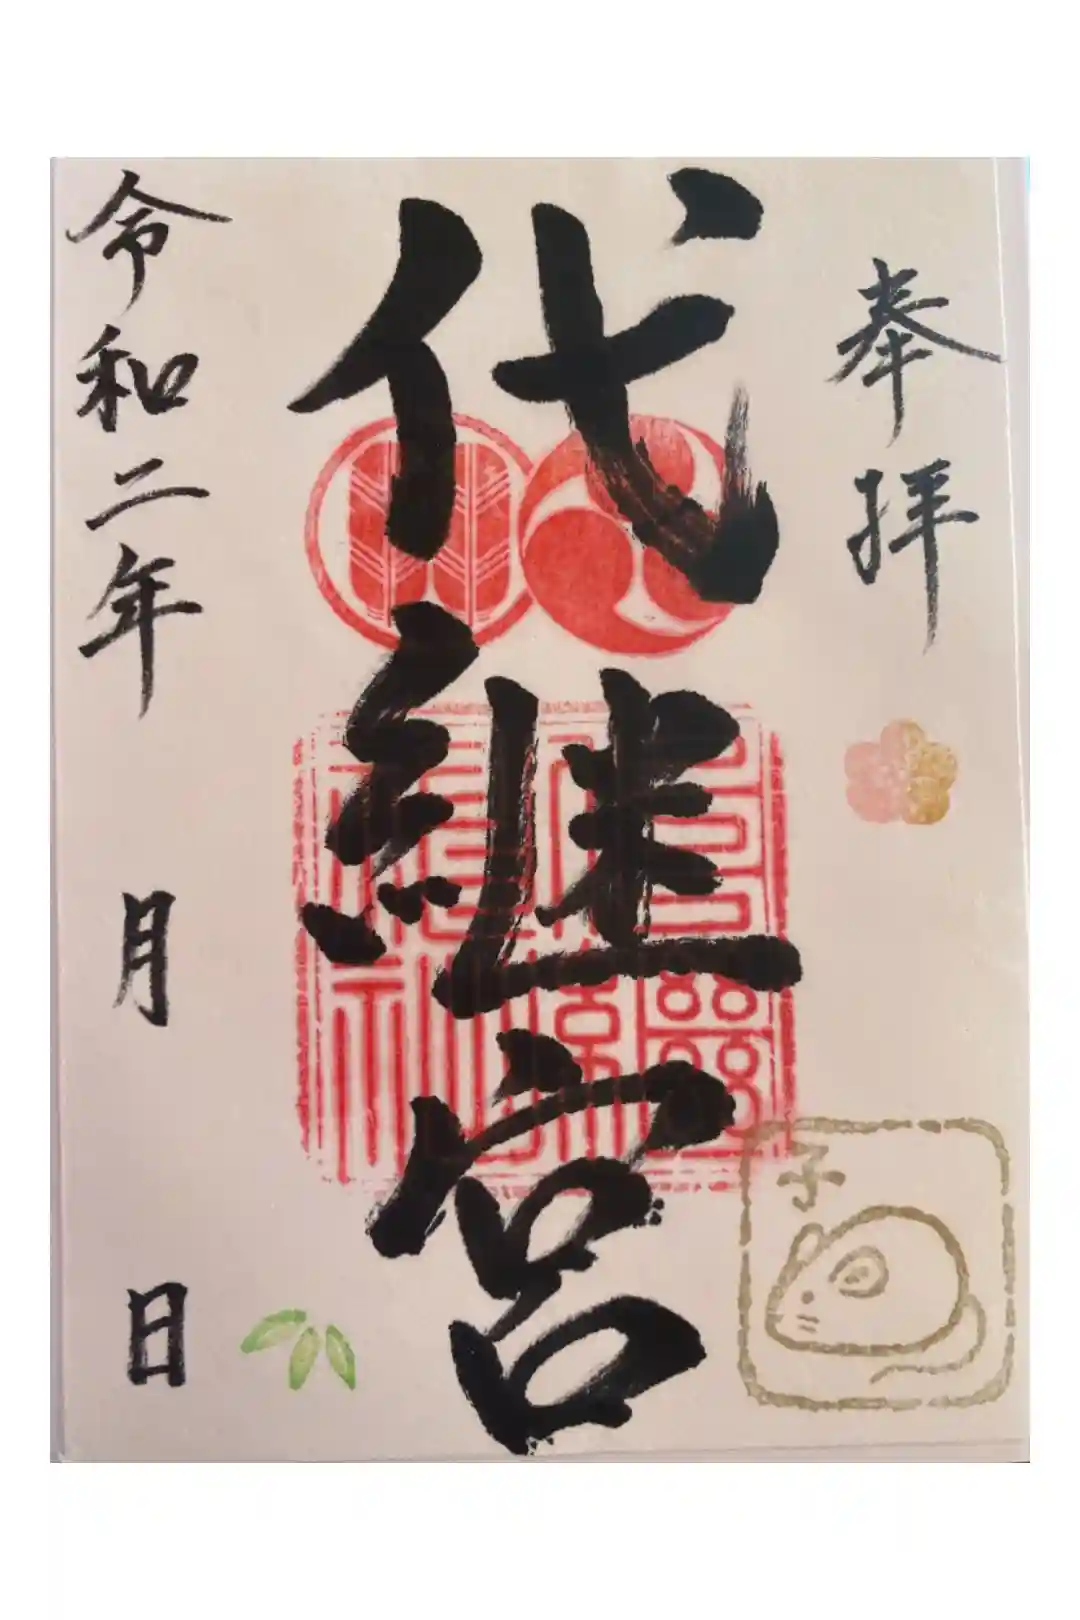 奉拝
代継宮
令和二年 月 日
子